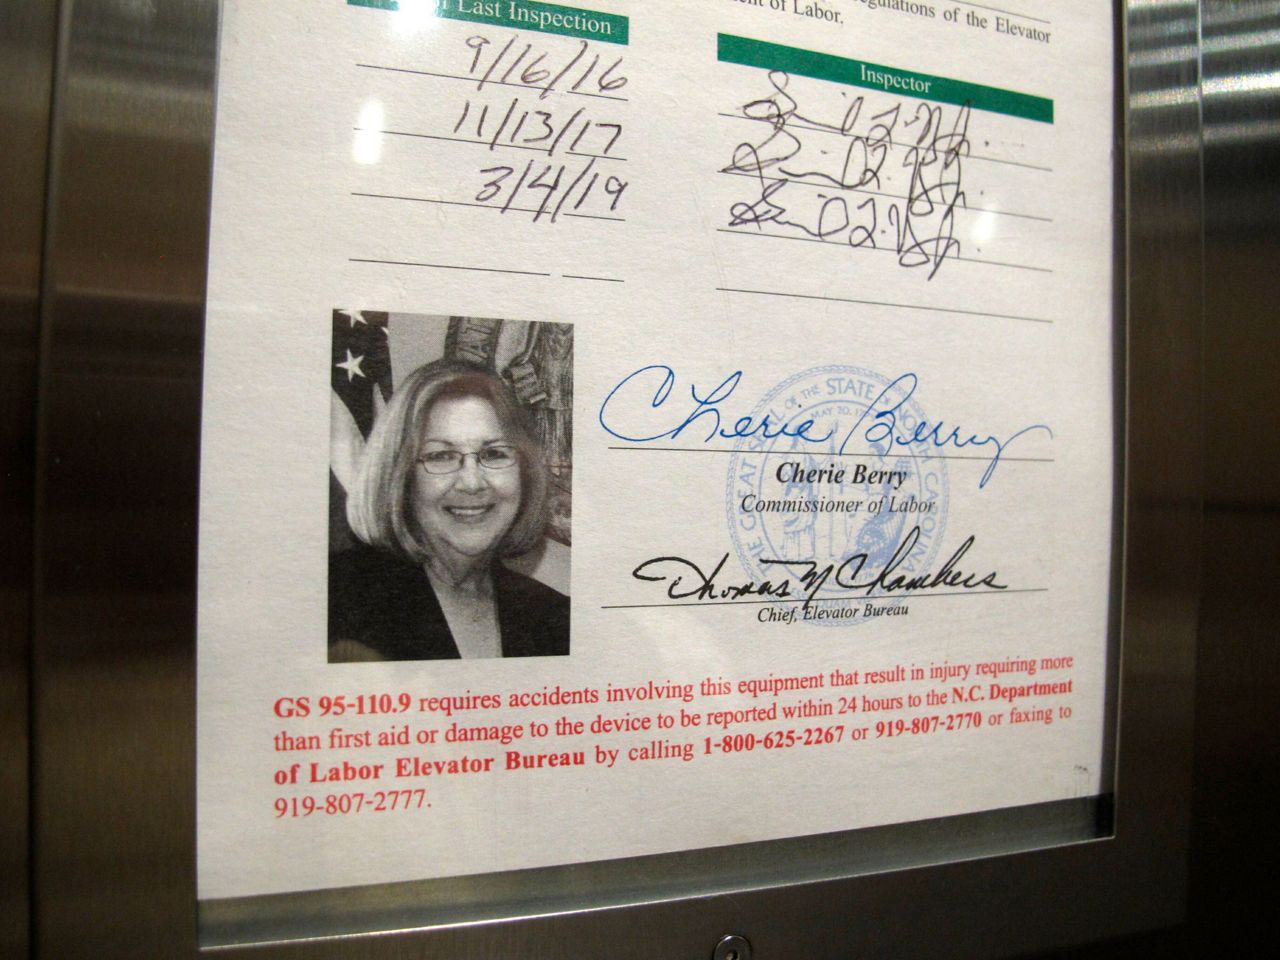 of Last Inspection
gulations of the Elevator
of Labor.
9/16/16
11/13/17
3/4/19
Inspector
Cherie Berry
THE GREAT SEAL OF THE STATE OF NORTH CAROLINA
MAY 20, 17
Cherie Berry
Commissioner of Labor
Thomas N Chambers
Chief, Elevator Bureau
GS 95-110.9 requires accidents involving this equipment that result in injury requiring more
than first aid or damage to the device to be reported within 24 hours to the N.C. Department
of Labor Elevator Bureau by calling 1-800-625-2267 or 919-807-2770 or faxing to
919-807-2777.